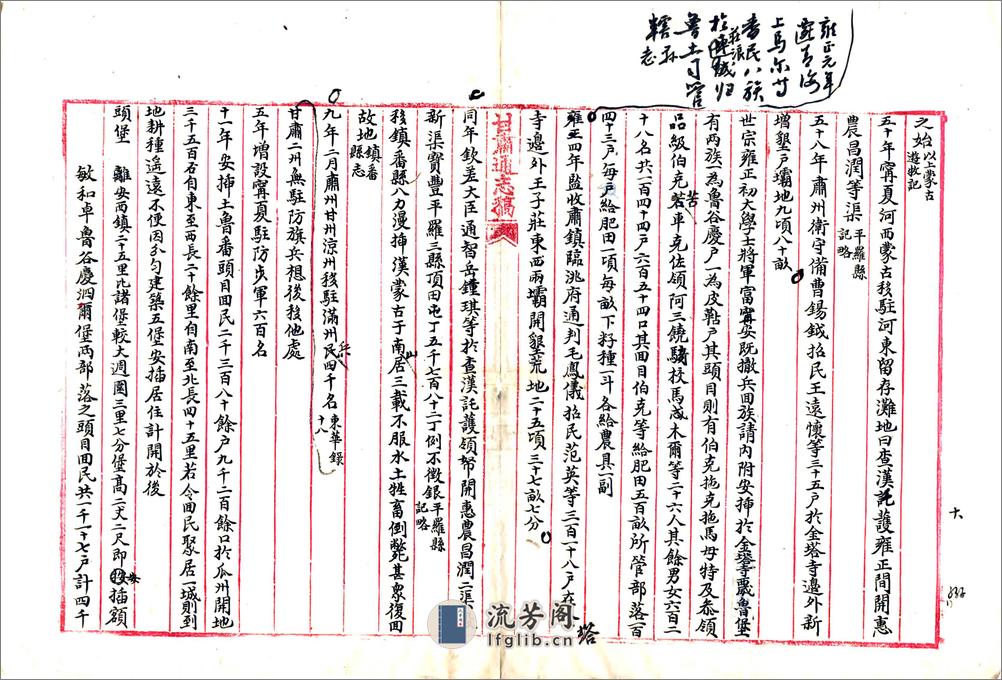 雍正元年
遊青海
上烏尔苷
番民八族
於莊浪連城归
魯土司管
轄 縣志
之始 以上蒙古遊牧記
五十年寧夏河西蒙古移駐河東留存灘地曰查漢託護雍正間開惠
農昌潤等渠 平羅縣記略
五十八年肅州衛守備曹錫鉞招民王遠懷等三十五戶於金塔寺邊外新
增墾戶壩地九頃八十畝
世宗雍正初大學士將軍富寧安既撤兵回族請內附安插於金塔寺威魯堡
有兩族一為魯谷慶戶一為皮勒戶其頭目則有伯克拖克拖馬母特及叅領
品級伯克若車克佐領阿三饒驍騎校馬咸木爾等二十六人其餘男女六百二
十八名共二百四十四戶六百五十四口其回目伯克等給肥田五百畝所管部落一百
四十三戶每戶給肥田一項每畝下籽種一斗各給農具一副
雍正四年監收肅鎮臨洮府通判毛鳳儀招民范英等三百一十八戶在金塔
寺邊外王子莊東西兩壩開墾荒地二十五頃三十七畝七分
甘肅通志稿
同年欽差大臣通智岳鍾琪等於查漢託護領帑開惠農昌潤二渠
新渠寶豐平羅三縣頂田屯丁五千七百八十二丁例不徵銀 平羅縣記略
移鎮番縣八力漫插漢蒙古于南山居三載不服水土牲畜倒斃甚衆復回
故地 鎮番縣志
九年二月肅州甘州涼州移駐滿州兵民四千名 東華錄十八
甘肅二州無駐防旗兵想後移他處
五年增設寧夏駐防步軍六百名
十一年安插土魯番頭目回民二千三百八十餘戶九千二百餘口於瓜州開地
三千五百石自東至西長二十餘里自南至北長四十五里若令回民聚居一城則到
地耕種遙遠不便因分勻建築五堡安插居住計開於後
頭堡 離安西鎮二十五里比諸堡較大週圍三里七分堡高二丈二尺即安插額
敏和卓魯谷慶泗爾堡兩部落之頭目回民共一千一十七戶計四千
十八
流芳阁
lfglib.cn